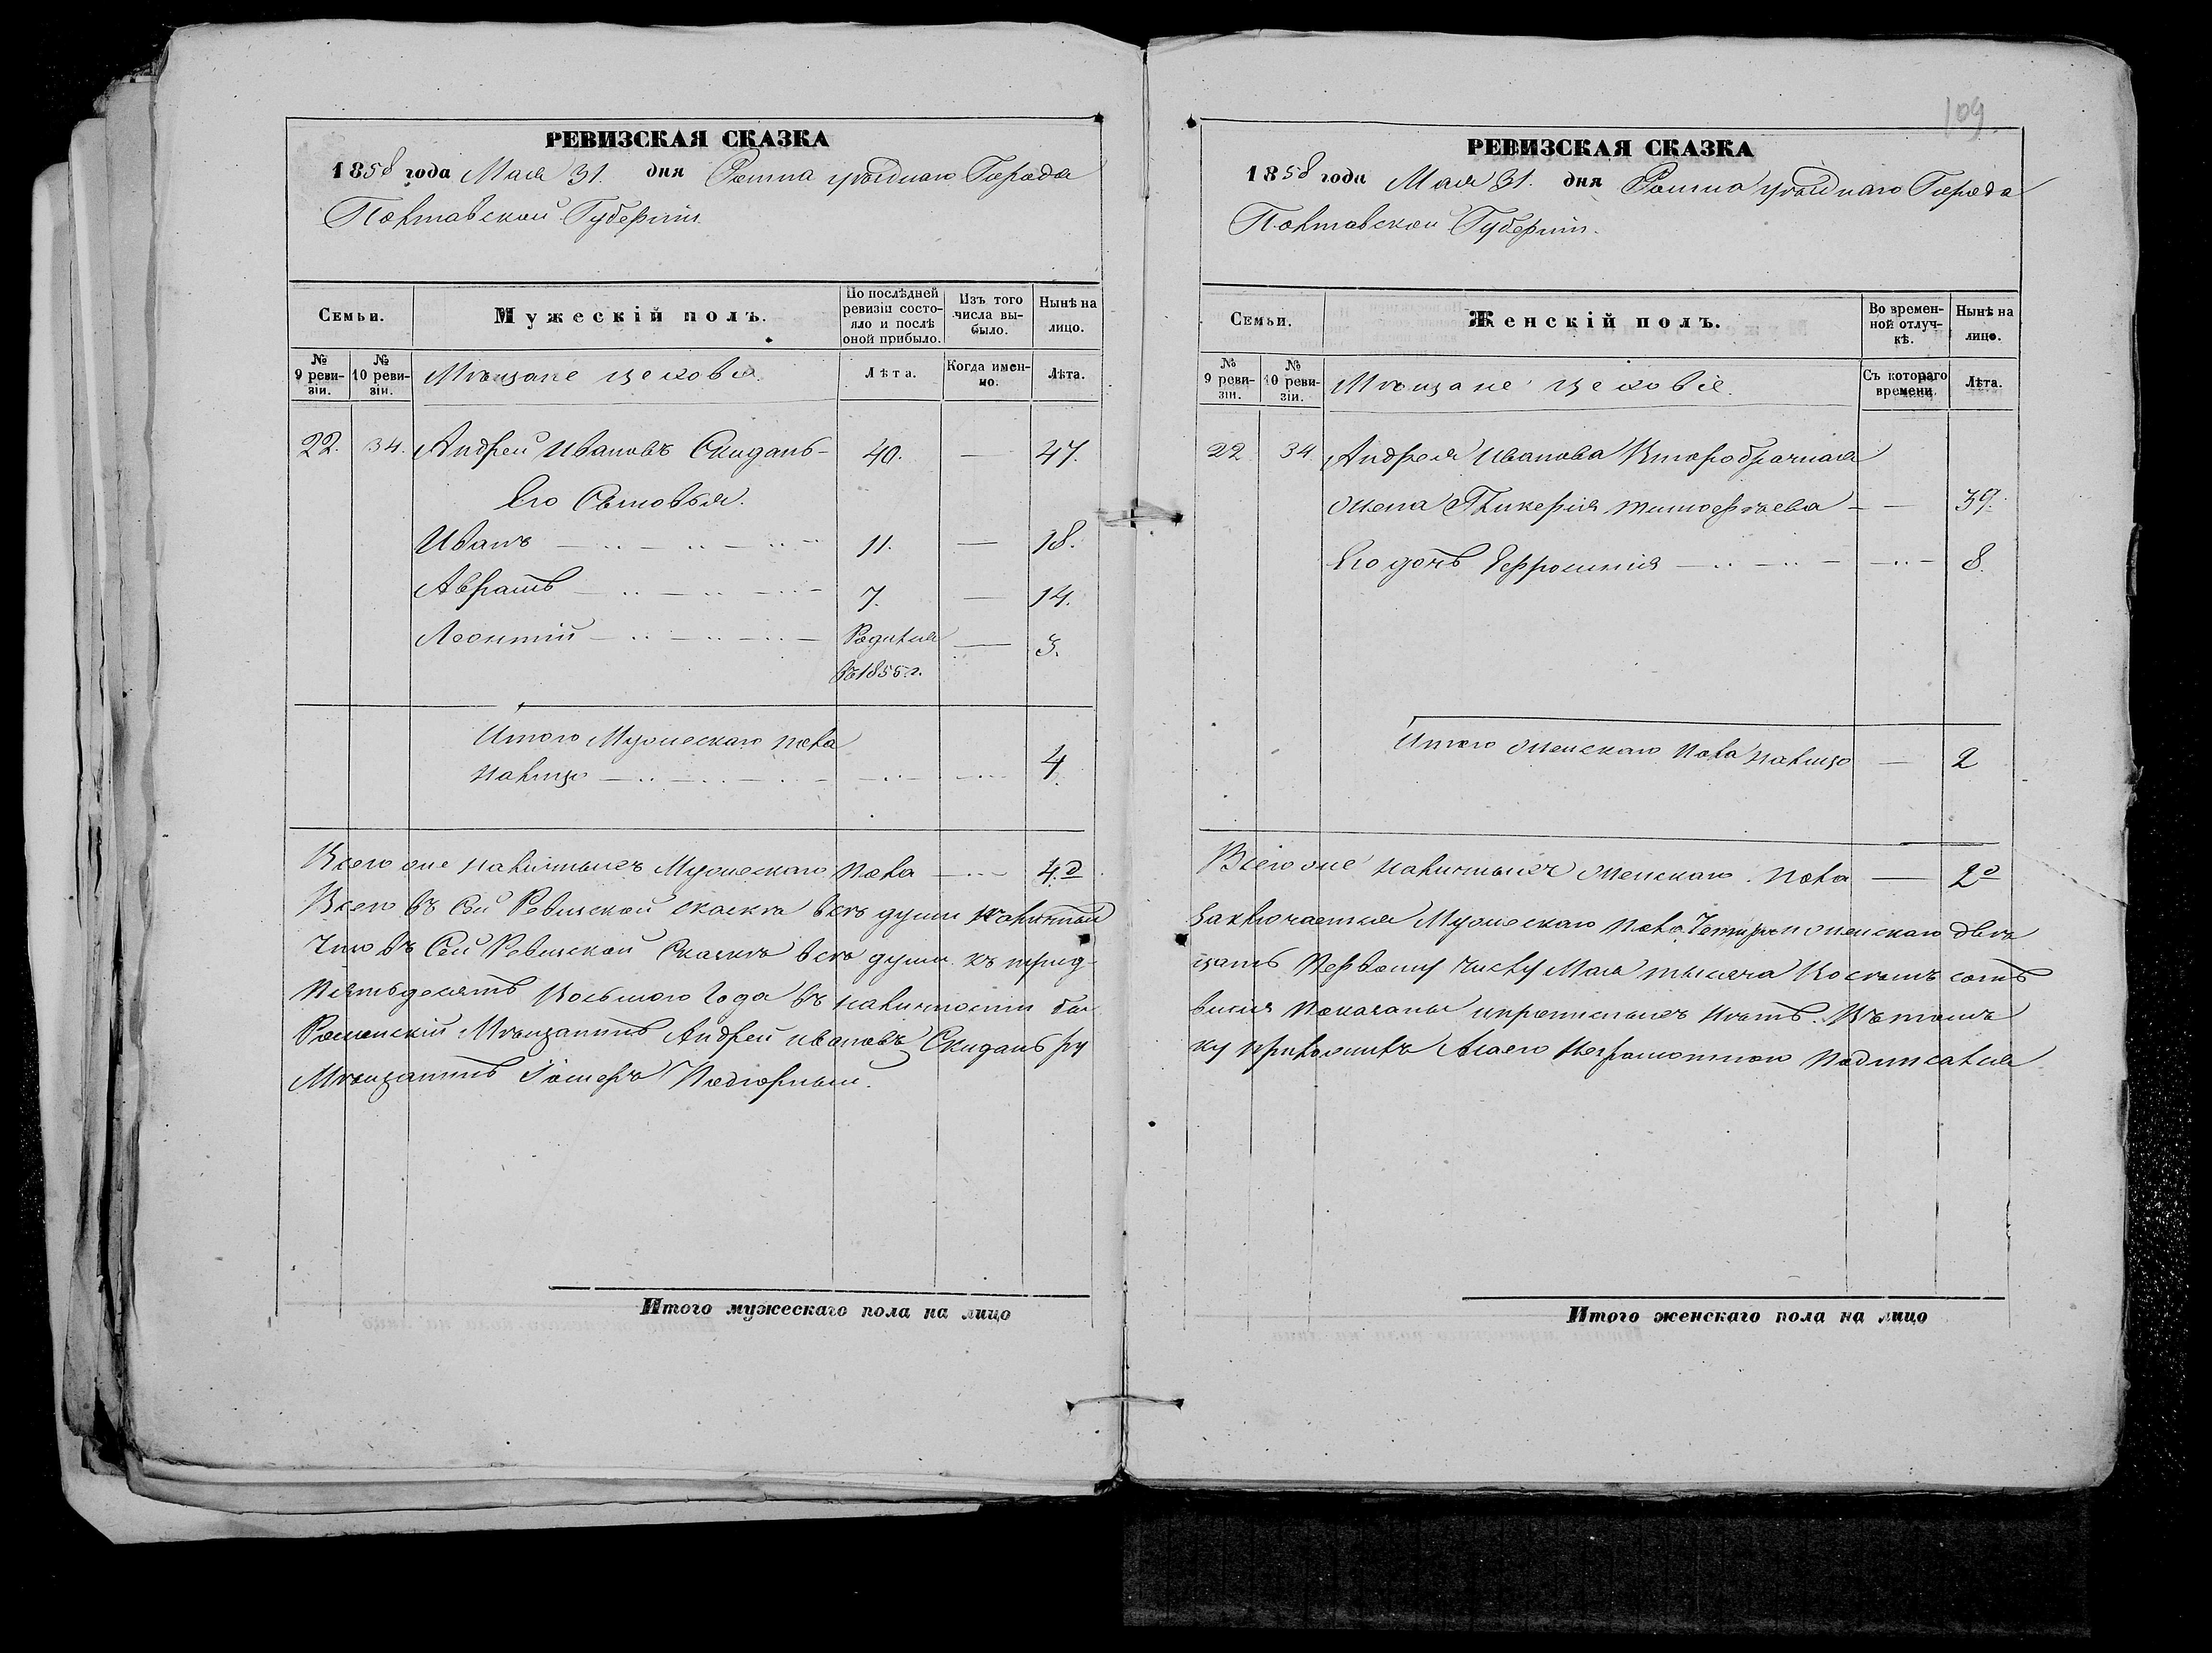 РЕВИЗСКАЯ СКАЗКА
1858 года Мая 31. дня Ромна уѣзднаго Города
Полтавской Губерніи
Семьи.
Мужескій полъ.
По послѣдней ревизіи состояло и послѣ оной прибыло.
Изъ того числа выбыло.
Нынѣ на лицо.
№ 9 ревизіи.
№ 10 ревизіи.
Мѣщане цеховые.
Лѣта.
Когда именно.
Лѣта.
22. 34. Андрей Ивановъ Скиданъ- 40. — 47.
Его Сыновья.
Иванъ 11. — 18.
Аврамъ 7. — 14.
Леонтій Родился — 3.
въ 1855 г.
Итого Мужескаго пола
налицо 4.
Всего же наличныхъ Мужескаго пола 4.
Всего въ Сей Ревизской сказкѣ всѣ души
Что въ Сей Ревизской Сказкѣ всѣ души къ трид-
Пятьдесятъ Восьмого Года въ наличности
Роменскій Мѣщанинъ Андрей Ивановъ Скиданъ ру
Мѣщанинъ
Итого мужескаго пола на лицо
109.
РЕВИЗСКАЯ СКАЗКА
1858 года Мая 31. дня Ромна уѣзднаго Города
Полтавской Губерніи.
Семьи.
Женскій полъ.
Во временной отлучкѣ.
Нынѣ на лицо.
№ 9 ревизіи.
№ 10 ревизіи.
Мѣщане цеховіе.
Съ котораго времени.
Лѣта.
22 34 Андрея Иванова Второбрачная
жена Гликерія Тимофѣева — 39.
Его дочь Ефросинія 8.
Итого женскаго пола налицо — 2
Всего же наличныхъ женскаго пола — 2
Заключается Мужескаго пола Четыре и женскаго двѣ
цать Первому числу Мая тысяча Восемъ сотъ
показаны и прописныхъ нѣтъ. Въ томъ
ку приложилъ а за его неграмотною подписался
Итого женскаго пола на лицо